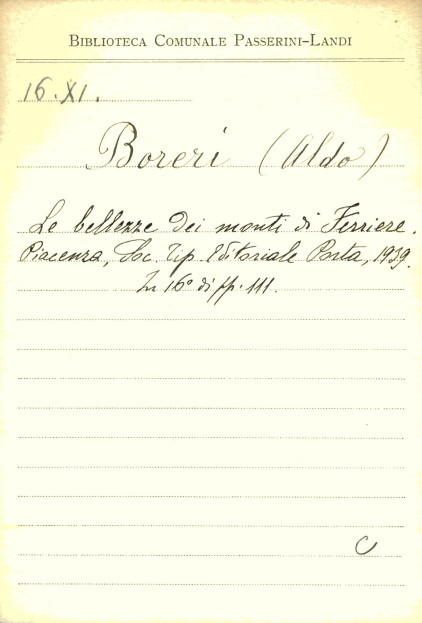 BIBLIOTECA COMUNALE PASSERINI-LANDI
16.XI.
Boreri (Aldo)
Le bellezze dei monti di Ferriere.
Piacenza, Soc. Tip. Editoriale Porta, 1939.
In 16° di pp. 111.
C